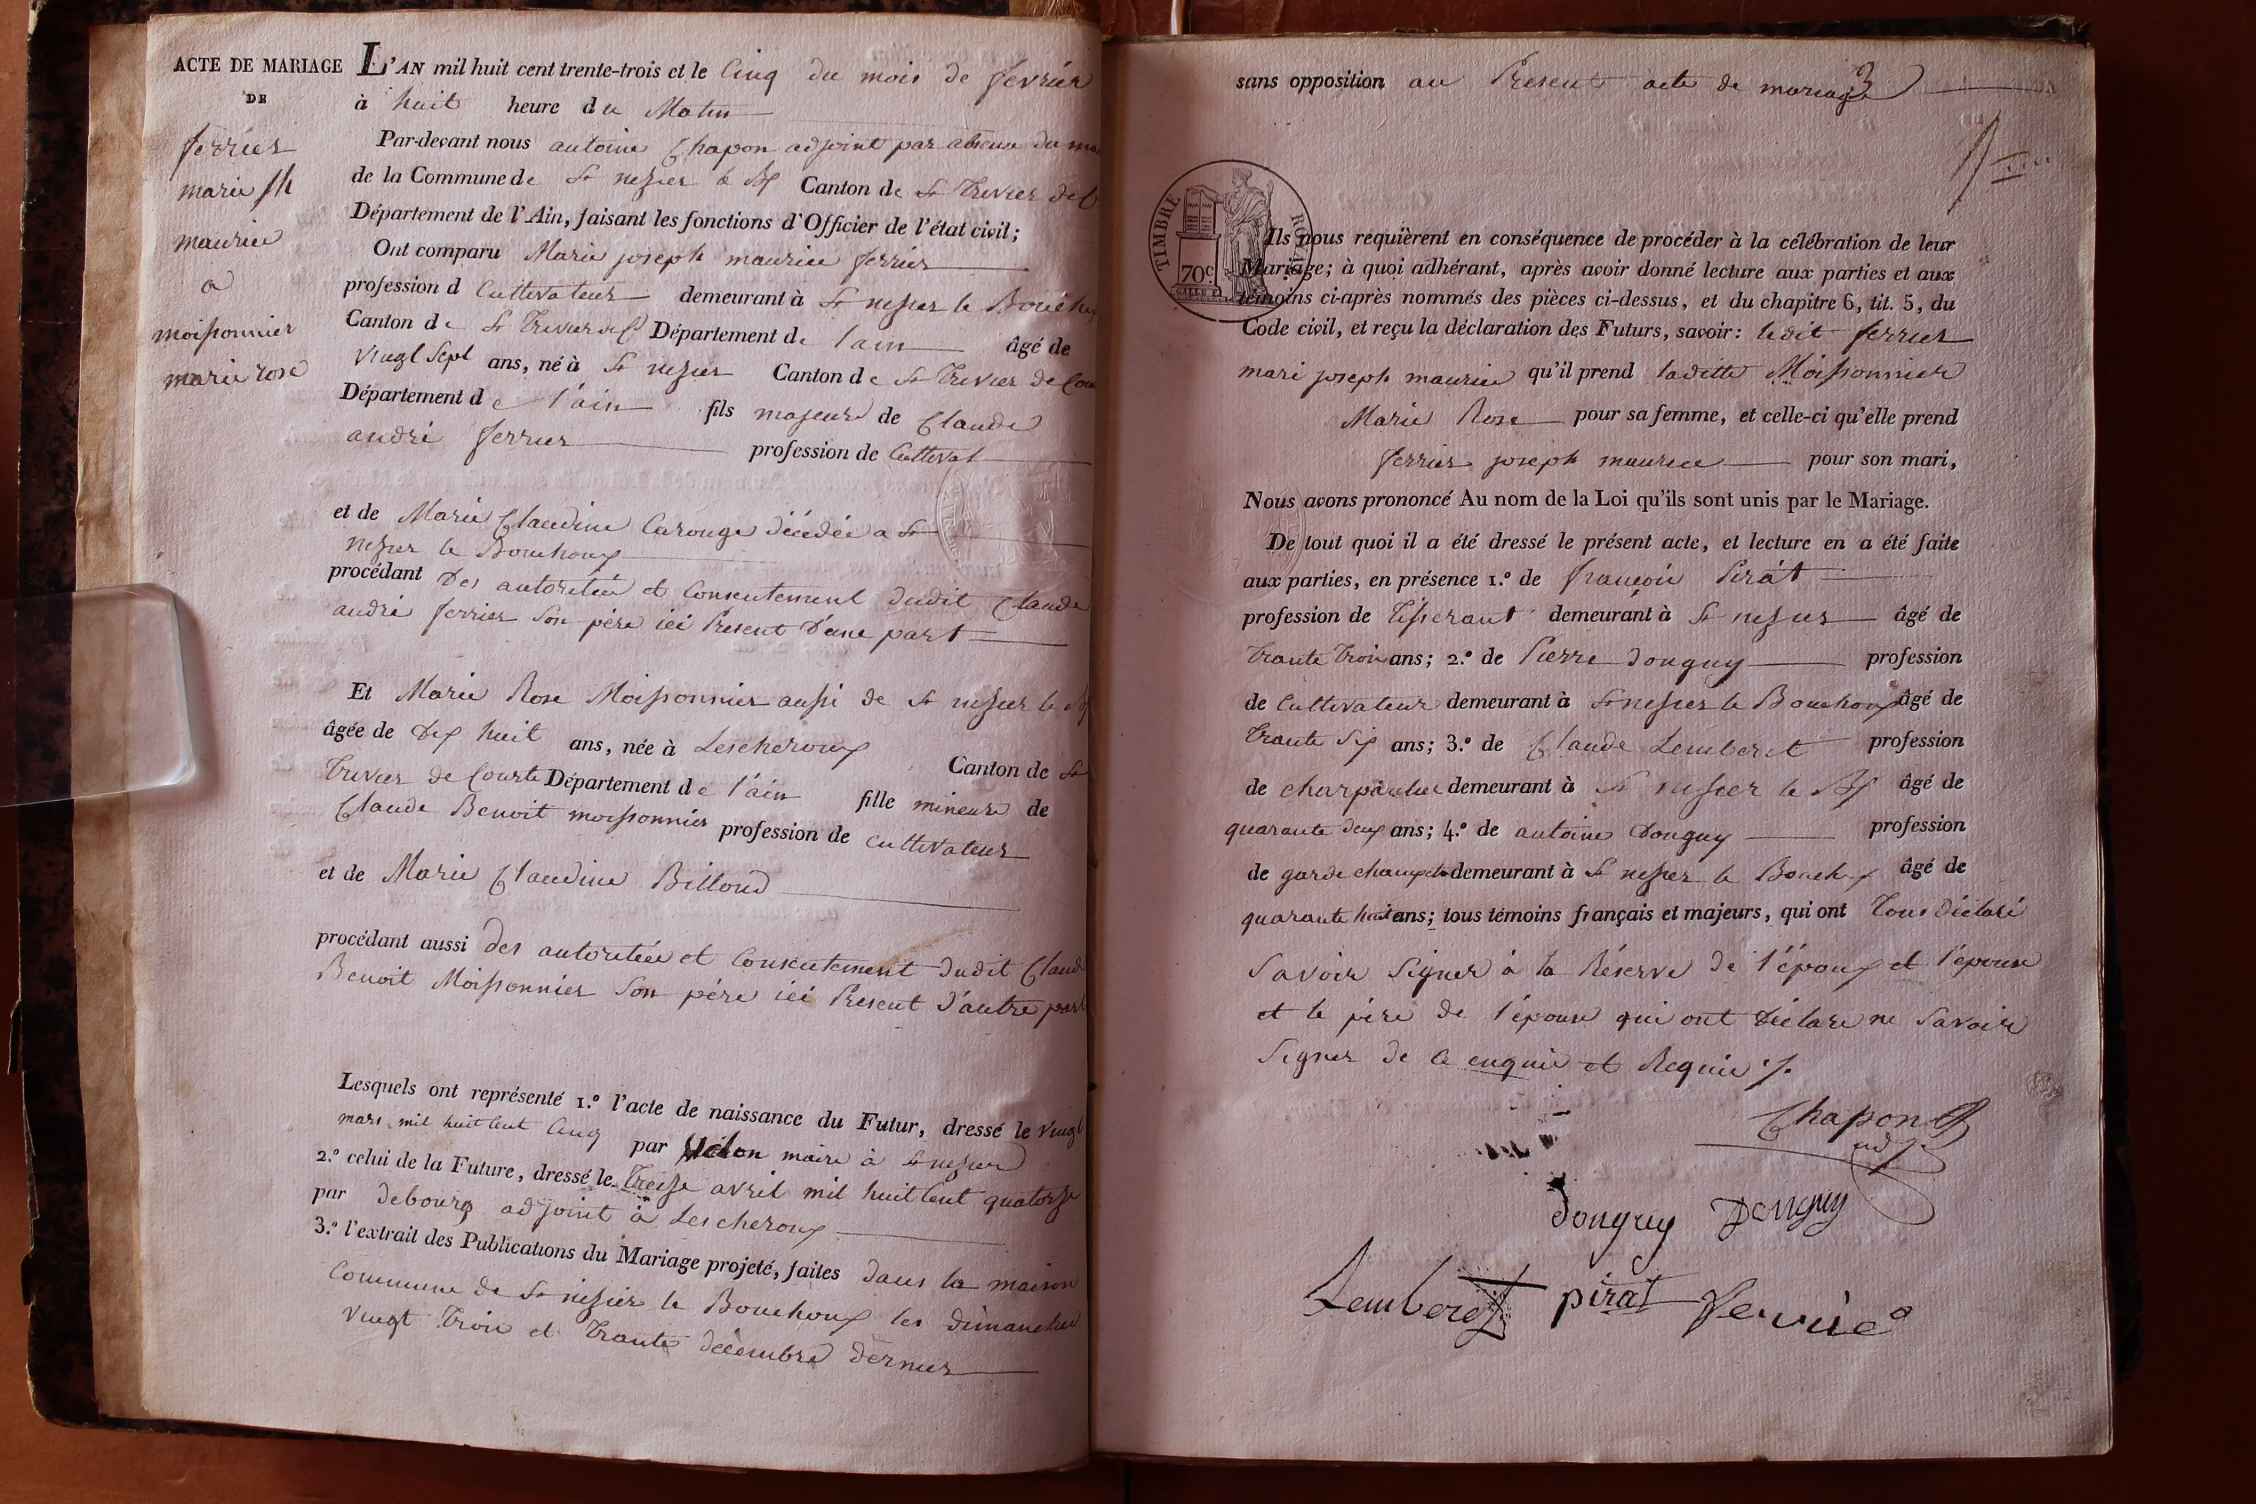 ACTE DE MARIAGE
DE
ferrier
marie jh
maurice
a
moissonnier
marie rose
L'AN mil huit cent trente-trois et le Cinq du mois de fevrier
à huit heure du Matin
Par-devant nous antoine Chapon adjoint par absence du
de la Commune de St nesier le Bx Canton de St Trivier de C
Département de l'Ain, faisant les fonctions d'Officier de l'état civil;
Ont comparu Marie joseph maurice ferrier
profession d Cultivateur demeurant à St nesier le Bouchoux
Canton de St Trivier de C Département de l'ain âgé de
vingt sept ans, né à St nesier Canton de St Trivier de Cou
Département de l'ain fils majeur de Claude
andré ferrier profession de Cultivat
et de Marie Claudine Carouge décédée a St
nesier le Bouchoux
procédant des autoritée et Consentement dudit Claude
andré ferrier Son père ici Present d'une part
Et Marie Rose Moissonnier aussi de St nesier le Bx
âgée de dix huit ans, née à Lescheroux Canton de St
Trivier de Courte Département de l'ain fille mineure de
Claude Benoit moissonnier profession de Cultivateur
et de Marie Claudine Billoud
procédant aussi des autoritée et Consentement dudit Claude
Benoit Moissonnier Son père ici Present d'autre part
Lesquels ont représenté 1.º l'acte de naissance du Futur, dressé le vingt
mars mil huit Cent Cinq par maire à St nesier
2.º celui de la Future, dressé le Treize avril mil huit Cent quatorze
par debourg adjoint à Lescheroux
3.º l'extrait des Publications du Mariage projeté, faites dans la maison
Commune de St nisier le Bouchoux les dimanches
vingt Trois et Trante décembre dernier
sans opposition au Present acte de mariage
3
TIMBRE ROYAL
70c
Ils nous requièrent en conséquence de procéder à la célébration de leur
Mariage; à quoi adhérant, après avoir donné lecture aux parties et aux
témoins ci-après nommés des pièces ci-dessus, et du chapitre 6, tit. 5, du
Code civil, et reçu la déclaration des Futurs, savoir: ledit ferrier
mari joseph maurice qu'il prend laditte Moissonnier
Marie Rose pour sa femme, et celle-ci qu'elle prend
ferrier joseph maurice pour son mari,
Nous avons prononcé Au nom de la Loi qu'ils sont unis par le Mariage.
De tout quoi il a été dressé le présent acte, et lecture en a été faite
aux parties, en présence 1.º de françois Pirat
profession de Tisserant demeurant à St nesier âgé de
Trante Trois ans; 2.º de Pierre donguy profession
de Cultivateur demeurant à St nesier le Bouchoux âgé de
Trante Six ans; 3.º de Claude Lemberet profession
de charpantier demeurant à St nesier le Bx âgé de
quarante deux ans; 4.º de antoine donguy profession
de garde champetre demeurant à St nesier le Bouchx âgé de
quarante huit ans; tous témoins français et majeurs, qui ont Tous déclaré
Savoir Signer à la Réserve de l'époux et l'épouse
et le père de l'épouse qui ont déclare ne Savoir
Signer de Ce enquis et Requis ./.
Chapon
adj
donguy Donguy
Lemberet pirat ferrier